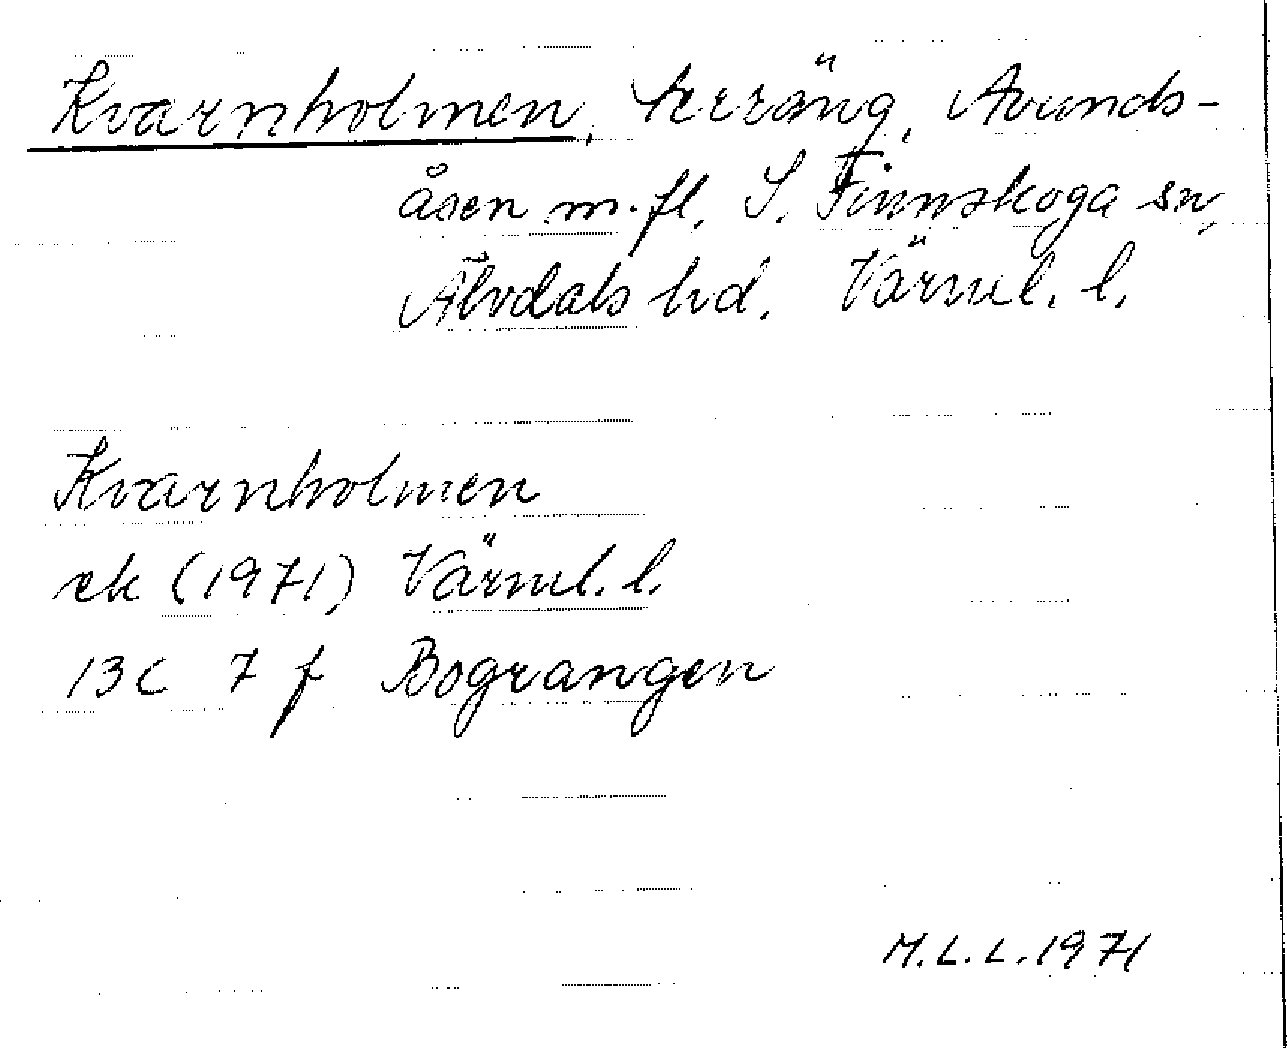 Kvarnholmen, terräng, Avunds-
åsen m.fl. S. Finnskoga sn,
Älvdals hd. Värml. l.
Kvarnholmen
ek (1971) Värml. l.
13C 7 f Bograngen
M.L.L. 1971